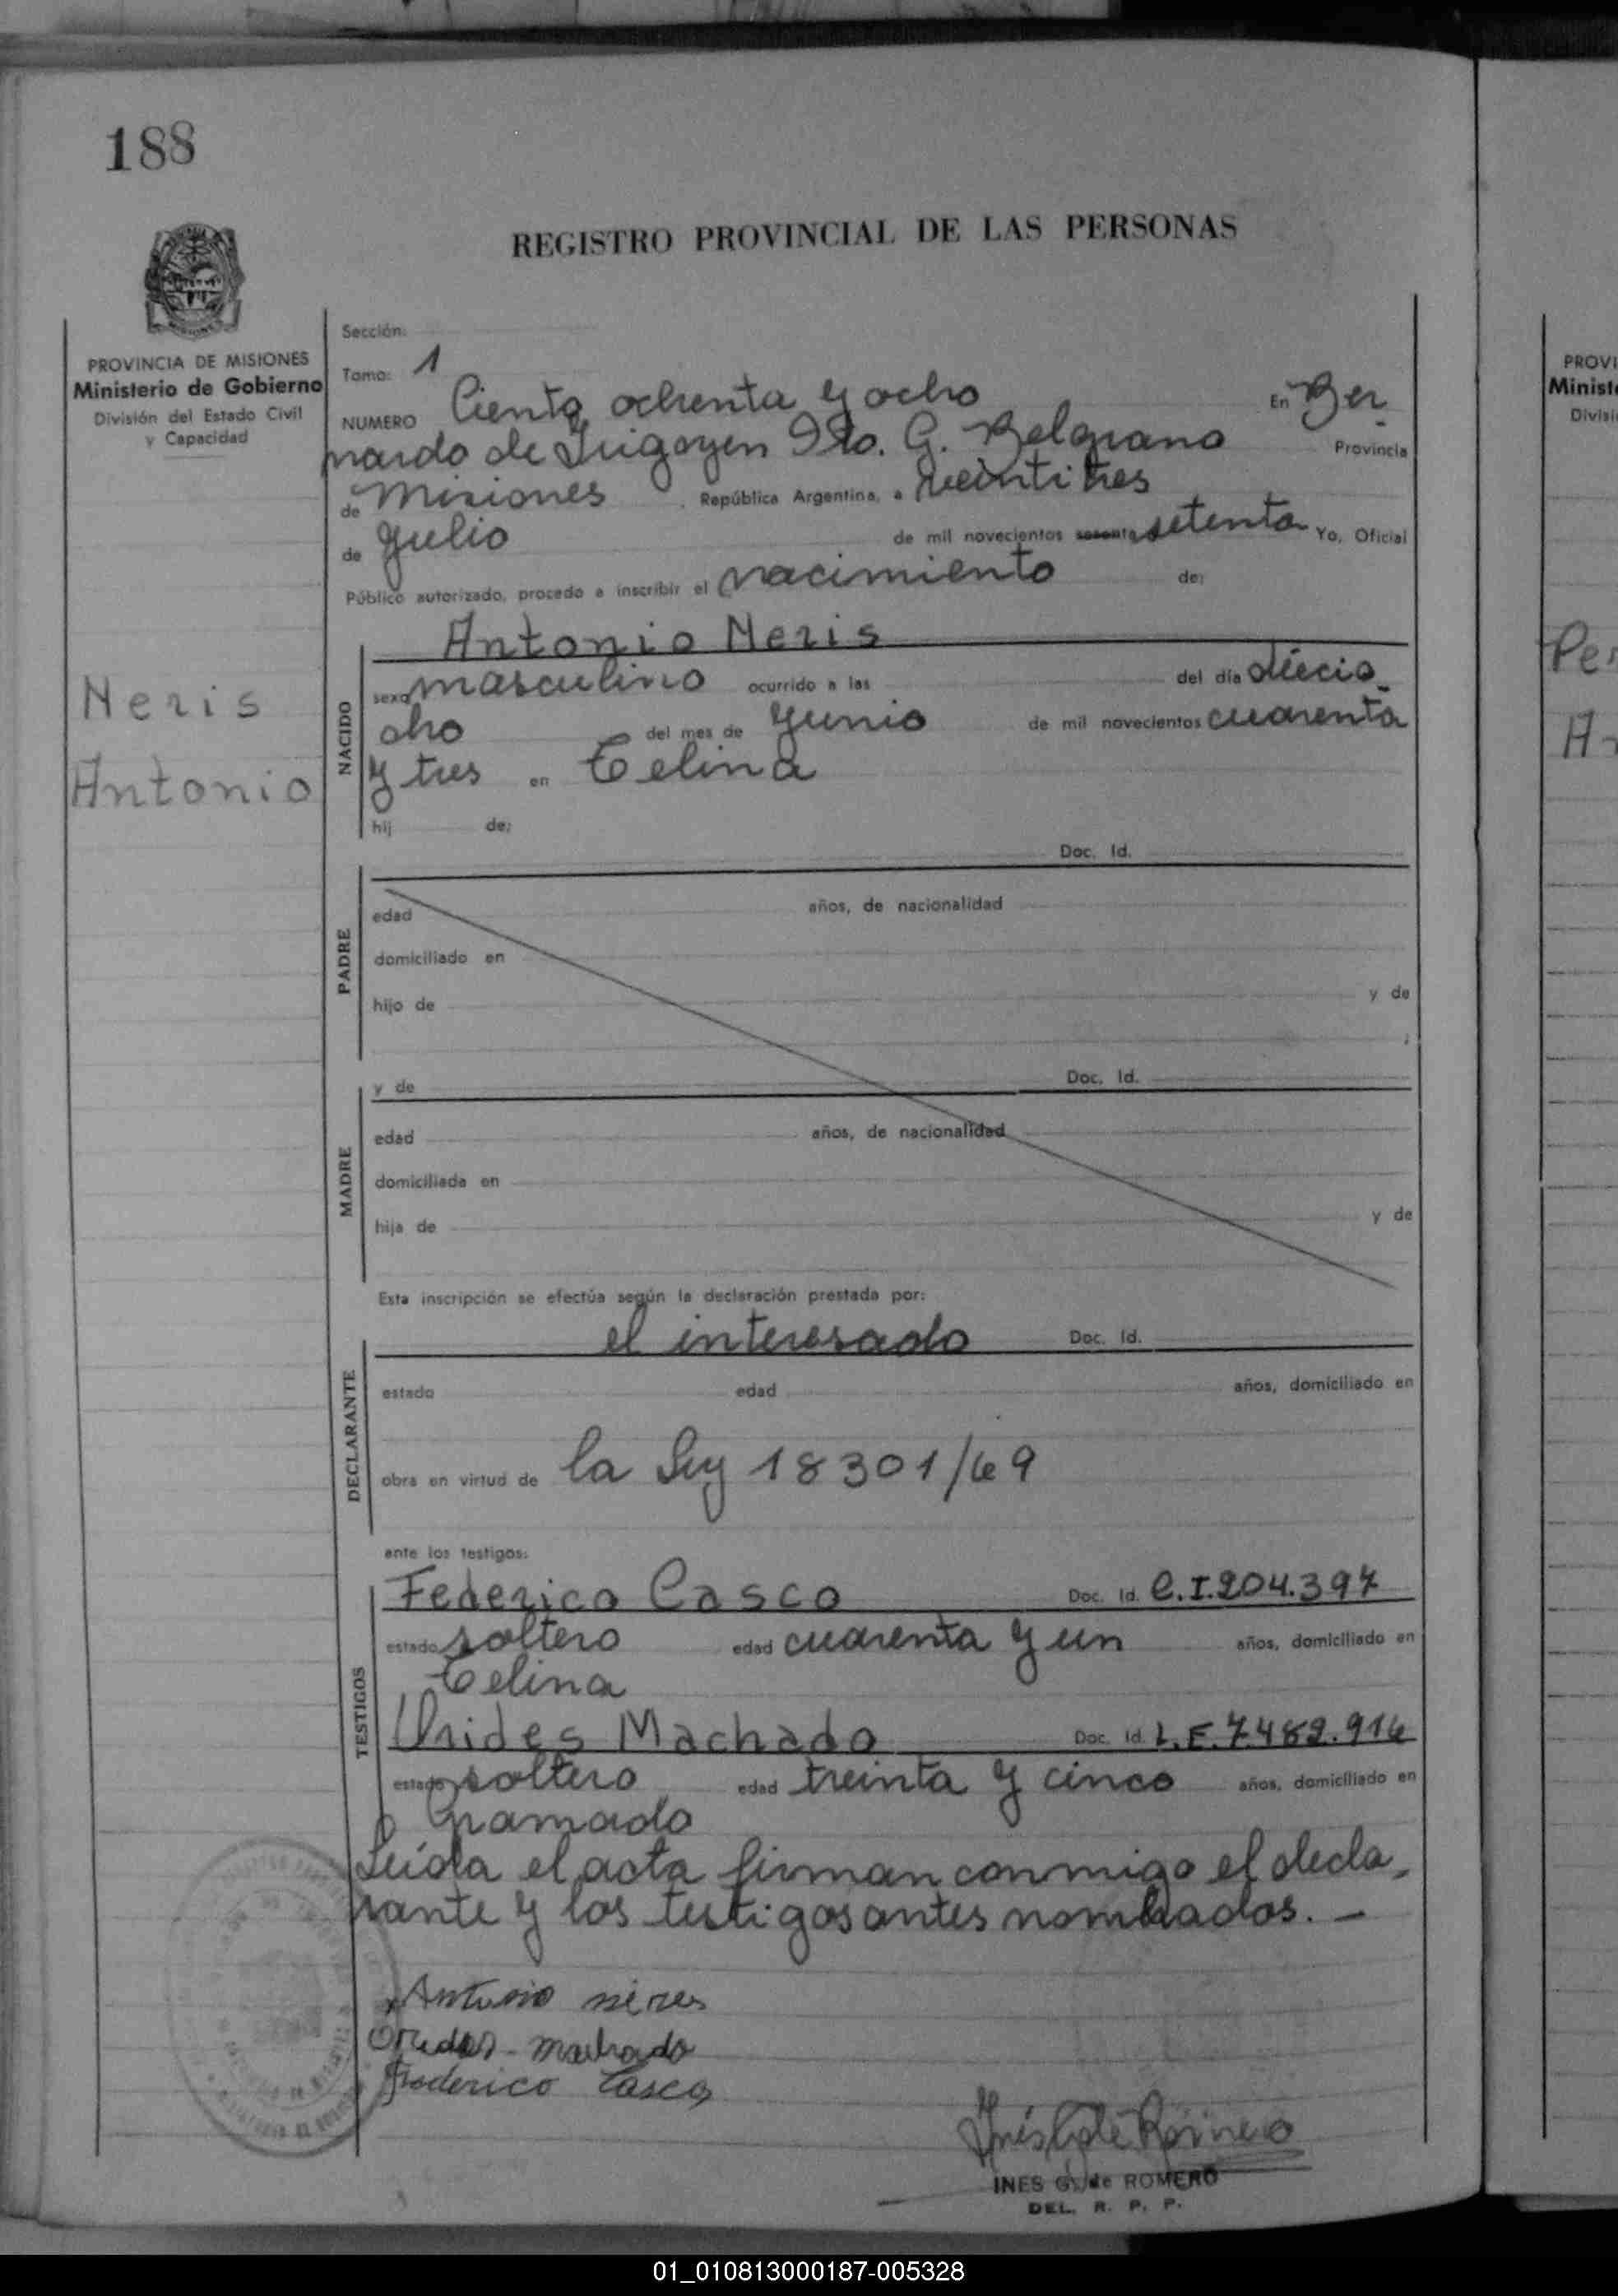 188
REGISTRO PROVINCIAL DE LAS PERSONAS
PROVINCIA DE MISIONES
Ministerio de Gobierno
División del Estado Civil
y Capacidad
Neris
Antonio
Sección:
Tomo: 1
NUMERO Ciento ochenta y ocho En Ber
nardo de Irigoyen Dto. G. Belgrano Provincia
de Misiones República Argentina, a veintitres
de Julio de mil novecientos sesenta setenta Yo, Oficial
Público autorizado, procedo a inscribir el nacimiento de:
NACIDO
Antonio Neris
sexo masculino ocurrido a las del día diecio
cho del mes de Junio de mil novecientos cuarenta
y tres en Celina
hij de:
Doc. Id.
PADRE
edad años, de nacionalidad
domiciliado en
hijo de y de
;
y de Doc. Id.
MADRE
edad años, de nacionalidad
domiciliada en
hija de y de
Esta inscripción se efectúa según la declaración prestada por:
el interesado Doc. Id.
DECLARANTE
estado edad años, domiciliado en
obra en virtud de la Ley 18301/69
ante los testigos:
TESTIGOS
Federico Casco Doc. Id. C.I.204.397
estado soltero edad cuarenta y un años, domiciliado en
Celina
Urides Machado Doc. Id. L.E.7.482.916
estado soltero edad treinta y cinco años, domiciliado en
Gramado
Leída el acta firman conmigo el decla-
rante y los testigos antes nombrados. -
Antonio neres
machado
Frederico Casco
INES G. de ROMERO
DEL. R. P. P.
PROVI
Minist
Divisi
Pe
A
01_010813000187-005328